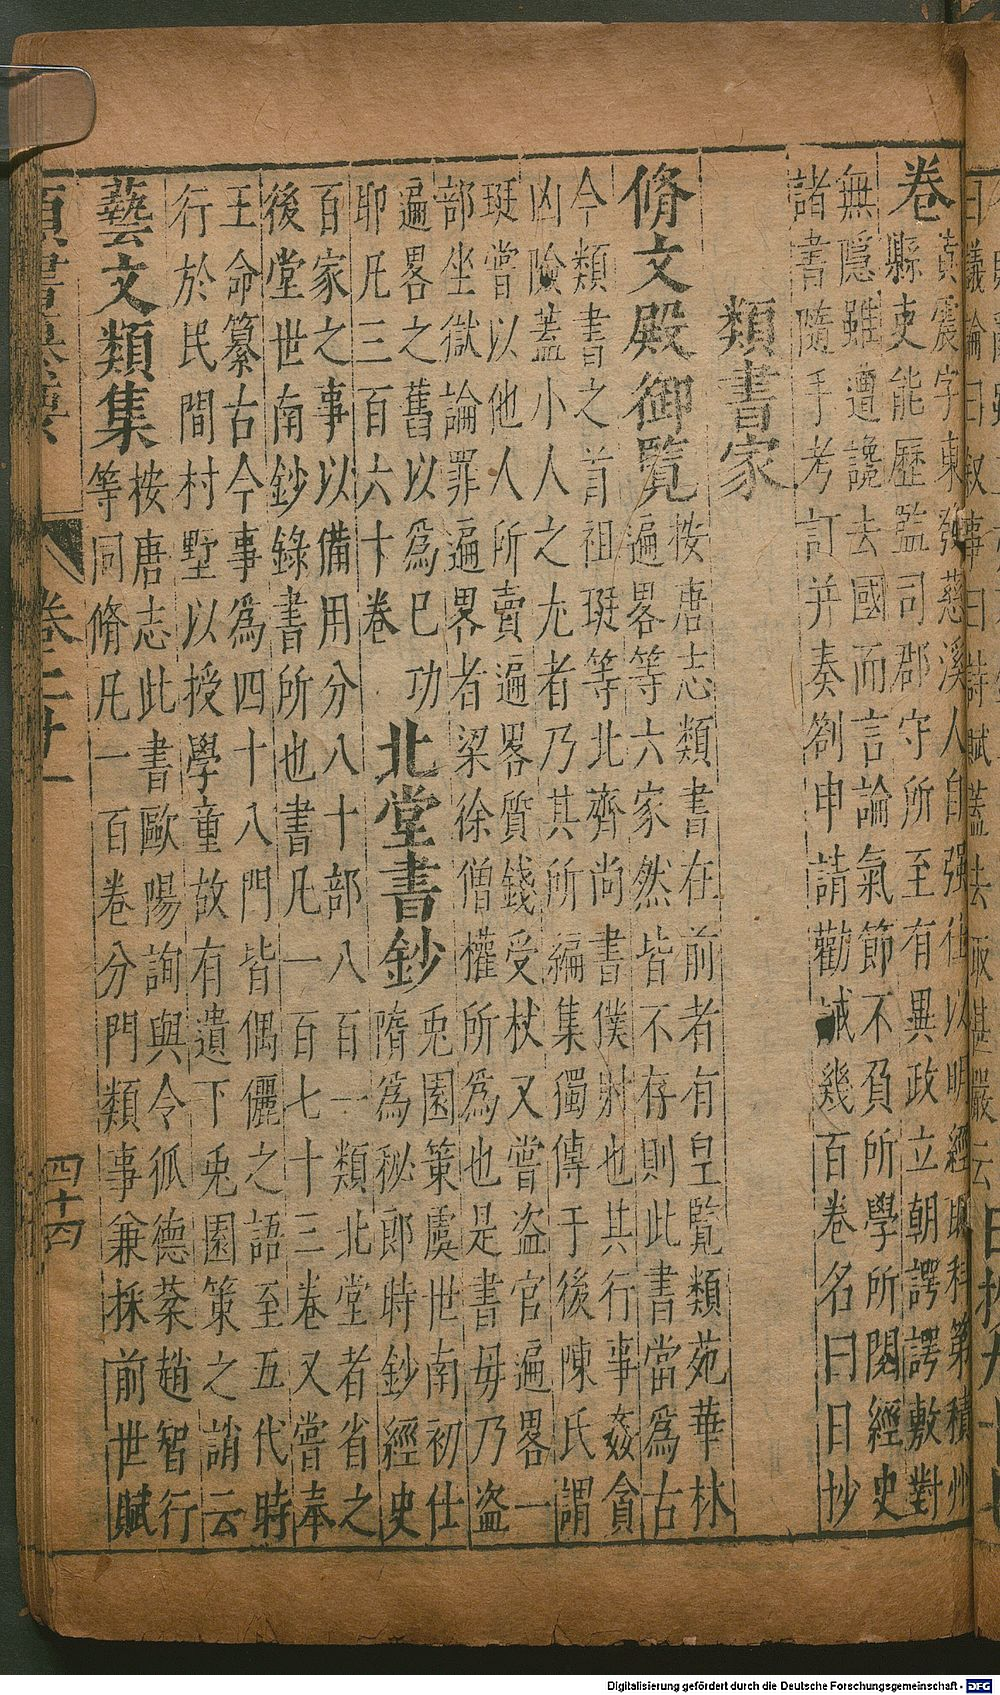 卷
黄震字東發慈溪人自强仕以明經取科第積州
縣吏能歷監司郡守所至有異政立朝諤諤敷對
無隱雖遭讒去國而言論氣節不負所學所閱經史
諸書隨手考訂并奏劄申請勸誡幾百卷名曰日抄
類書家
脩文殿御覧
按唐志類書在前者有皇覧類苑華林
遍畧等六家然皆不存則此書當爲古
今類書之首祖珽等北齊尚書僕射也其行事姦貪
凶險蓋小人之尤者乃其所編集獨傳于後陳氏謂
珽嘗以他人所賣遍畧質錢受杖又嘗盗官遍畧一
部坐獄論罪遍畧者梁徐僧權所爲也是書毋乃盗
遍畧之舊以爲已功
耶凡三百六十卷
北堂書鈔
兎園策虞世南初仕
隋爲秘郎時鈔經史
百家之事以備用分八十部八百一類北堂者省之
後堂世南鈔錄書所也書凡一百七十三卷又嘗奉
王命纂古今事爲四十八門皆偶儷之語至五代時
行於民間村墅以授學童故有遺下兎園策之誚云
藝文類集
按唐志此書歐陽詢與令狐德棻趙智行
等同脩凡一百卷分門類事兼採前世賦
卷二十一
四十四
Digitalisierung gefördert durch die Deutsche Forschungsgemeinschaft - DFG